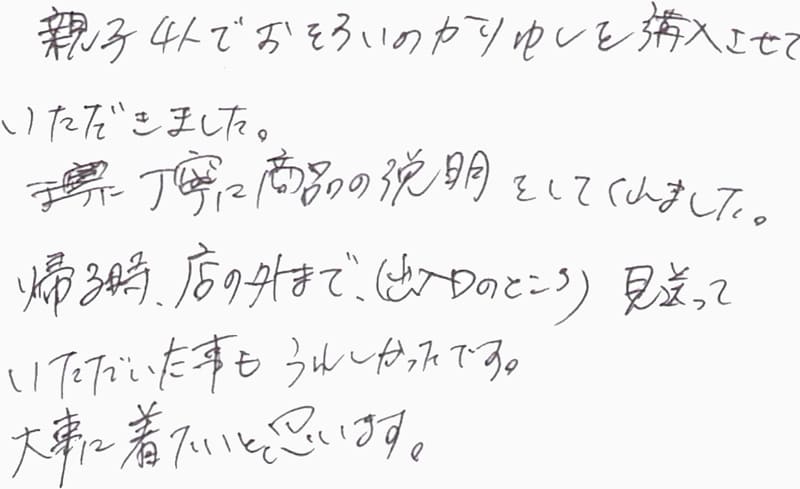 親子4人でおそろいのかりゆしを購入させて
いただきました。
丁寧に商品の説明をしてくれました。
帰る時、店の外まで、(出入口のところ)見送って
いただいた事もうれしかったです。
大事に着たいと思います。